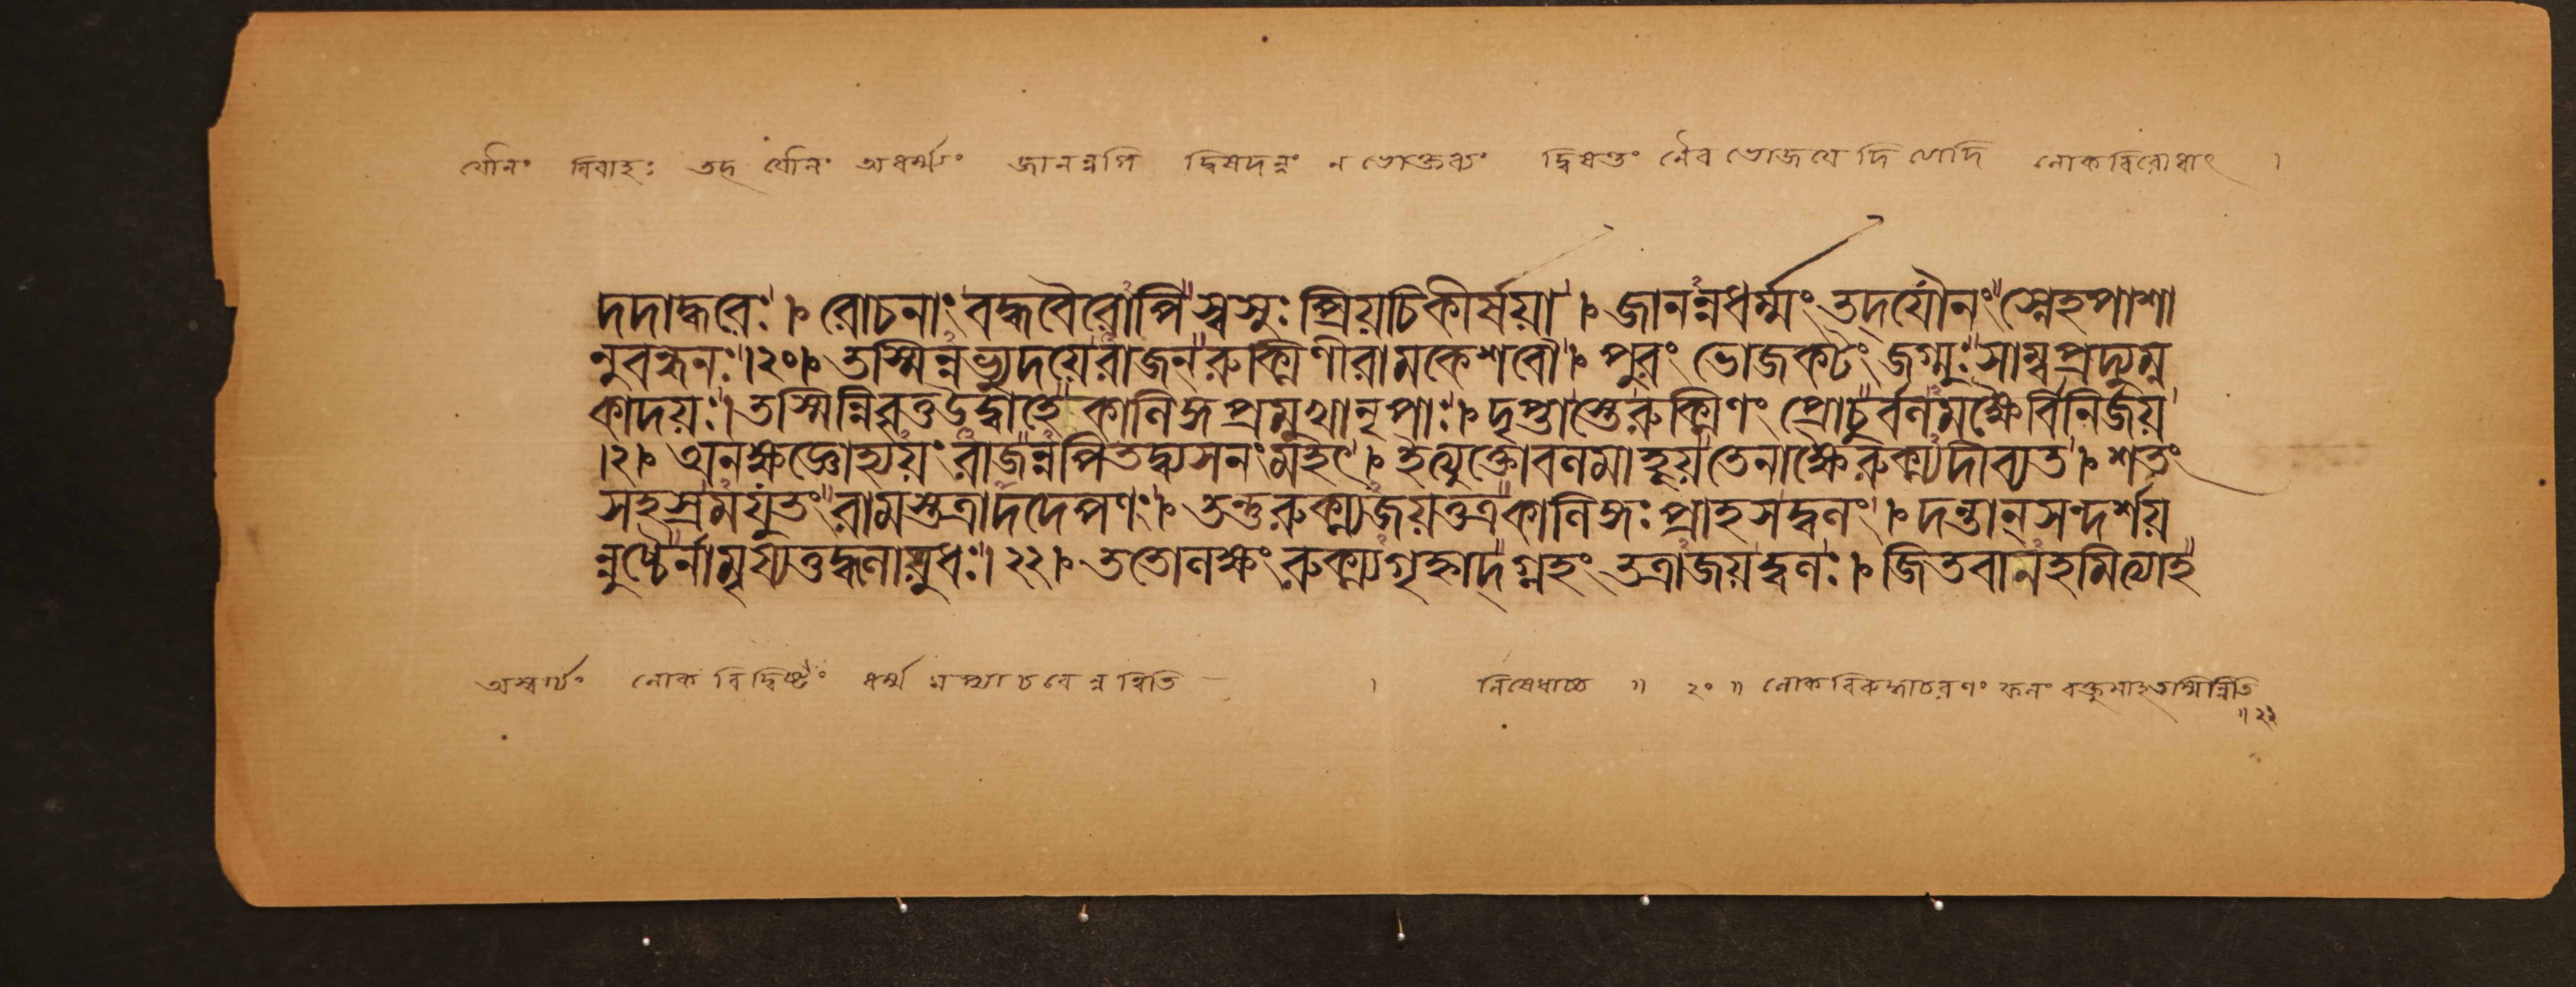 যৌনং বিবাহঃ তদ্ যৌনং অধর্ম্ম্যং জানন্নপি দ্বিষদন্নং ন ভোক্তব্যং দ্বিষন্তং নৈব ভোজযেদিত্যাদি লোকবিরোধাৎ ।
দদাদ্ধরেঃ। রোচনাং বদ্ধবৈরোপি স্বসুঃ প্রিয়চিকীর্ষয়া । জানন্নধর্ম্মং তদ্যৌনং স্নেহপাশা
নুবন্ধনঃ।২০। তস্মিন্নভ্যুদয়ে রাজন্ রুক্মিণীরামকেশবৌ। পুরং ভোজকটং জগ্মুঃ সাম্বপ্রদ্যুম্ন
কাদয়ঃ। তস্মিন্নিবৃত্ত উদ্বাহে কালিঙ্গপ্রমুখানৃপাঃ। দৃপ্তাস্তে রুক্মিণং প্রোচুর্বলমক্ষৈর্বিনির্জয়
।২। অনক্ষজ্ঞোহ্যয়ং রাজন্নপি তদ্ব্যসনং মহৎ। ইত্যুক্তো বলমাহূয় তেনাক্ষৈরুক্ম্যদীব্যত। শতং
সহস্রমযুতং রামস্তত্রাদদে পণং। তন্তু রুক্ম্যজয়ত্তত্র কালিঙ্গঃ প্রাহসদ্বলং। দন্তান্ সন্দর্শয়
ন্নুচ্চৈর্নামৃষ্যত্তদ্ধলায়ুধঃ। ২২। ততোলক্ষং রুক্ম্যগৃহ্নাদ্ গ্লহং তত্রাজয়দ্বলঃ। জিতবানহমিত্যাহ
অস্বর্গ্যং লোকবিদ্বিষ্টং ধর্ম্মমপ্যাচরেন্নত্বিতি । নিষেধাচ্চ ॥ ২০ ॥ লোকবিরুদ্ধাচরণং ফলং বক্তুমাহ তস্মিন্নিতি
॥ ২১